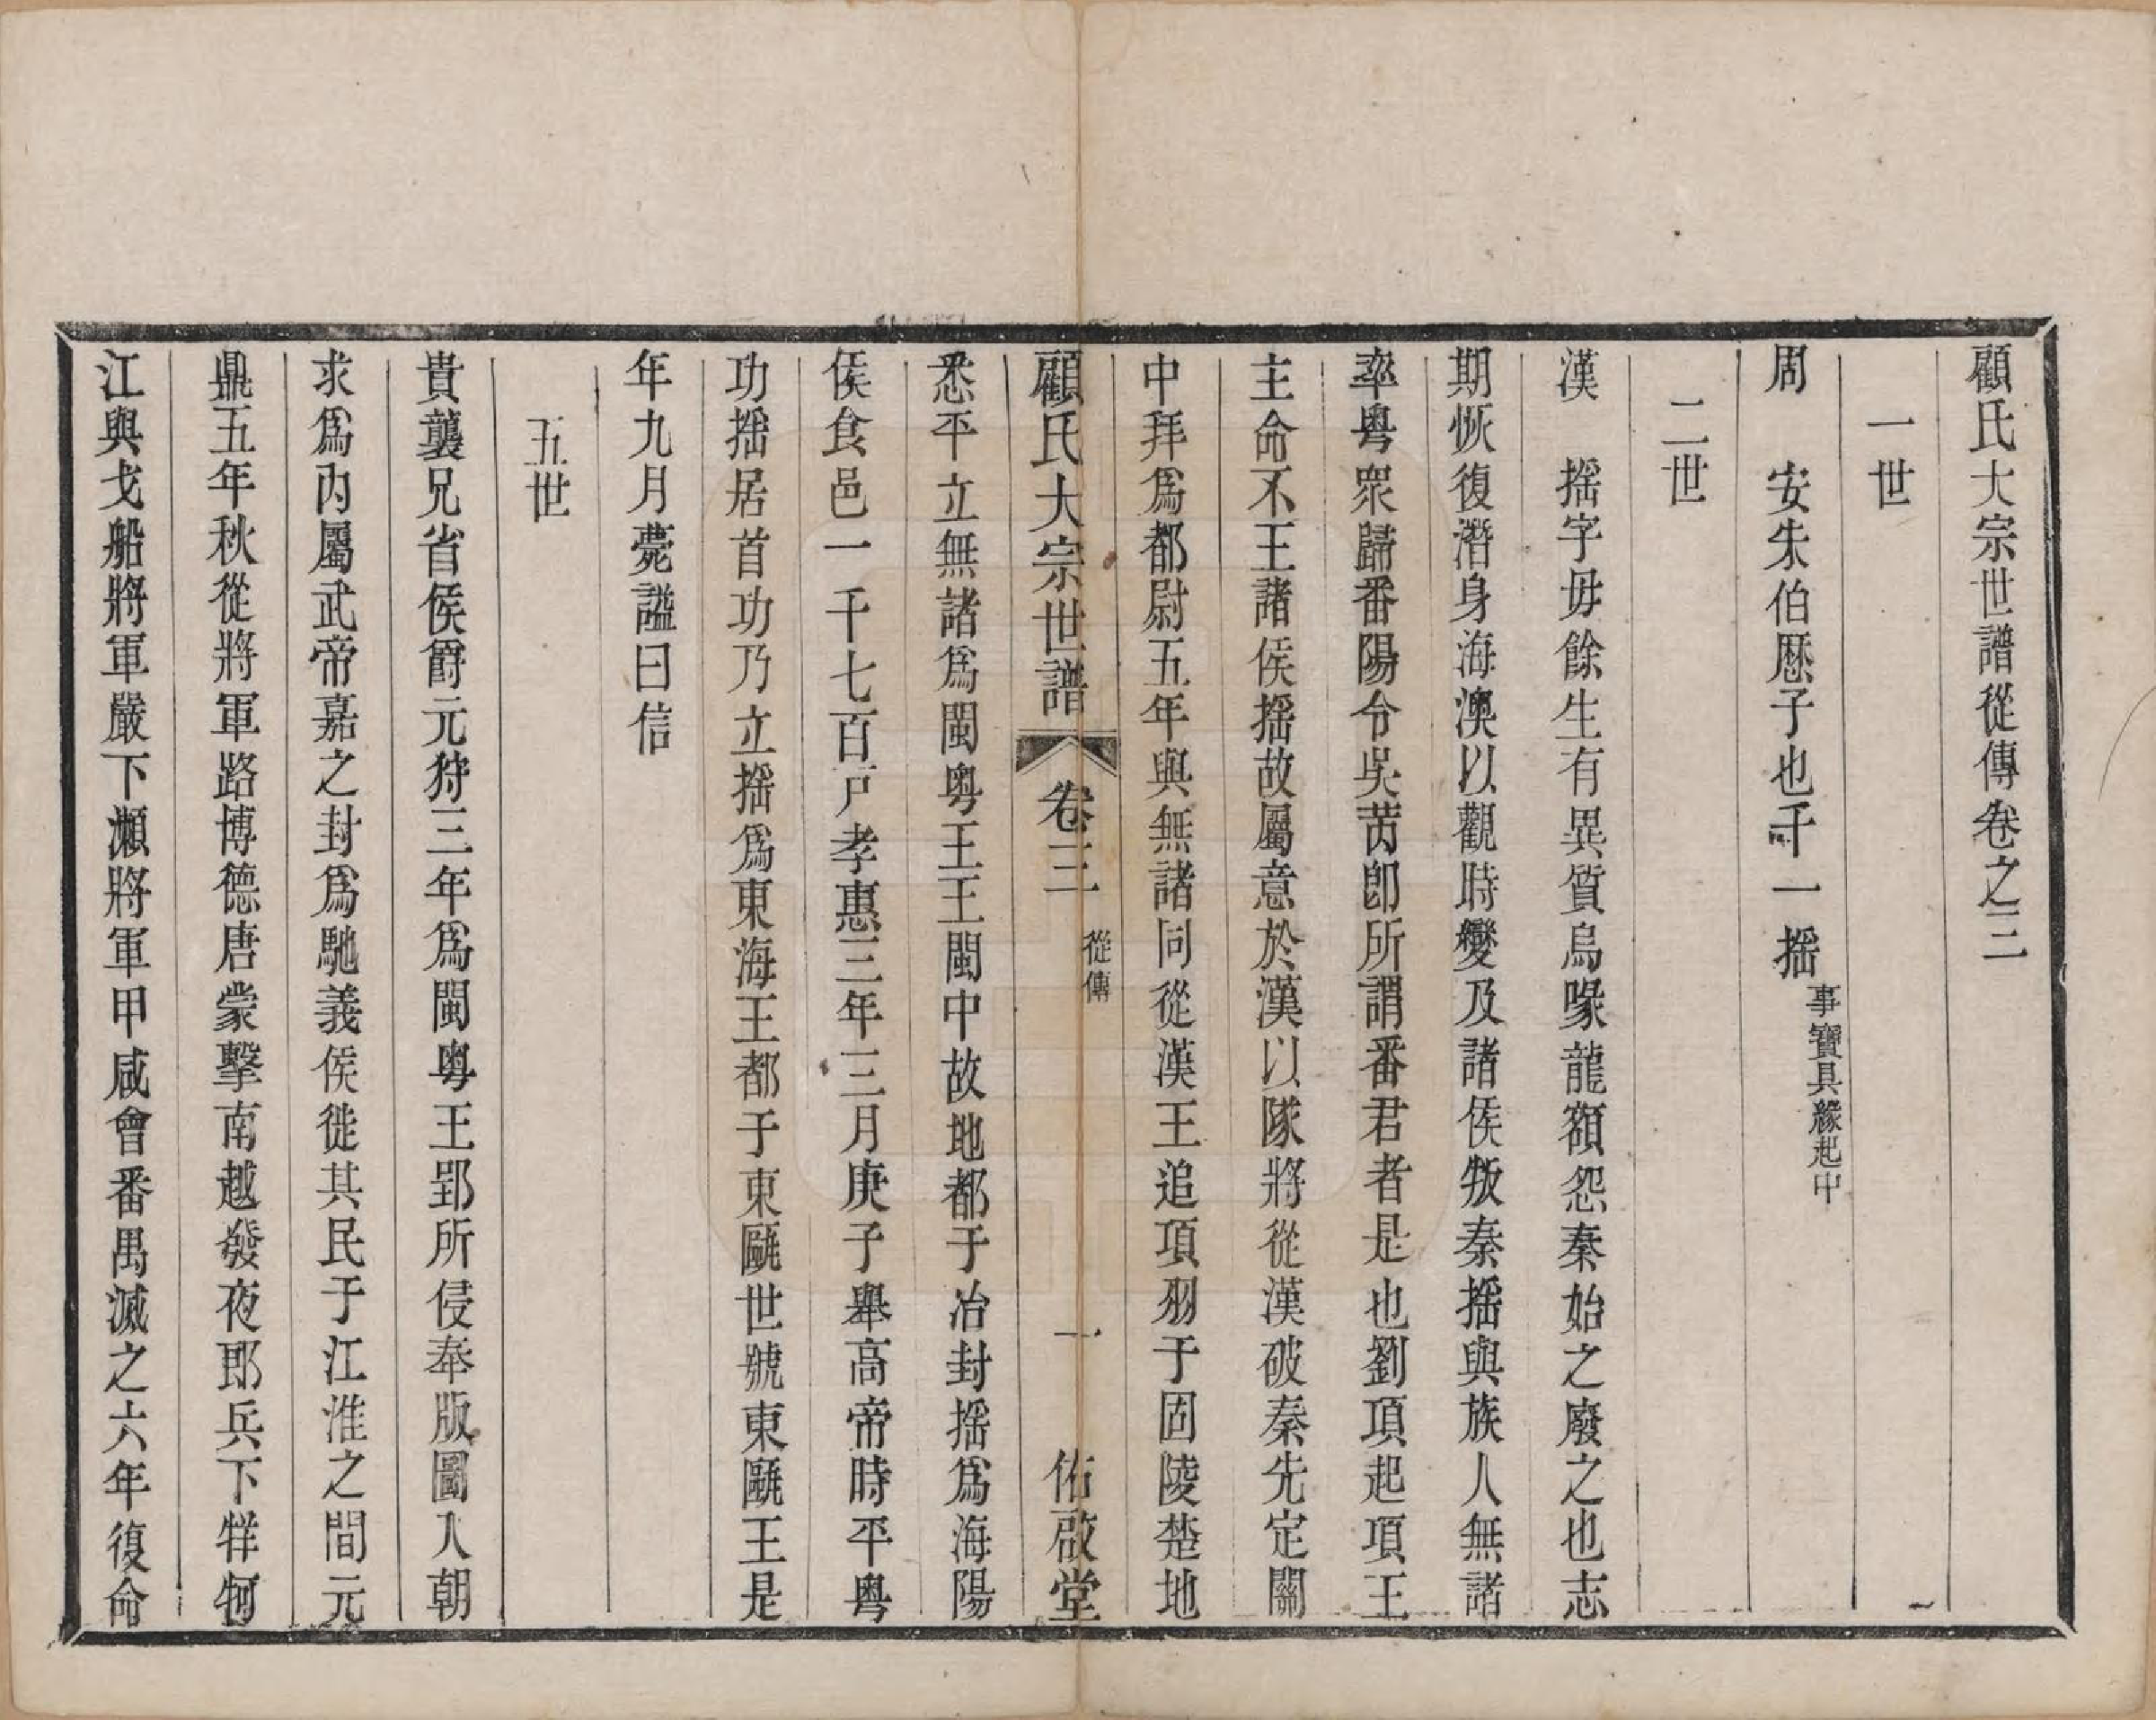 顧氏大宗世譜從傳卷之三
一世
周　安朱伯歷子也子一搖事實具緣起中
二世
漢　搖字毋餘生有異質鳥喙龍額怨秦始之廢之也志
期恢復潛身海澳以觀時變及諸侯叛秦搖與族人無諸
率粤眾歸番陽令吳芮卽所謂番君者是也劉項起項王
主命不王諸侯搖故屬意於漢以隊將從漢破秦先定關
中拜爲都尉五年與無諸同從漢王追項羽于固陵楚地
顧氏大宗世譜　卷三　從傳　一　佑啟堂
悉平立無諸爲閩粤王王閩中故地都于冶封搖爲海陽
侯食邑一千七百戶孝惠三年三月庚子舉高帝時平粤
功搖居首功乃立搖爲東海王都于東甌世號東甌王是
年九月薨謚曰信
五世
貴襲兄省侯爵元狩三年爲閩粤王郢所侵奉版圖入朝
求爲內屬武帝嘉之封爲馳義侯徙其民于江淮之間元
鼎五年秋從將軍路博德唐蒙擊南越發夜郎兵下牂牁
江與戈船將軍嚴下瀨將軍甲咸會番禺滅之六年復命